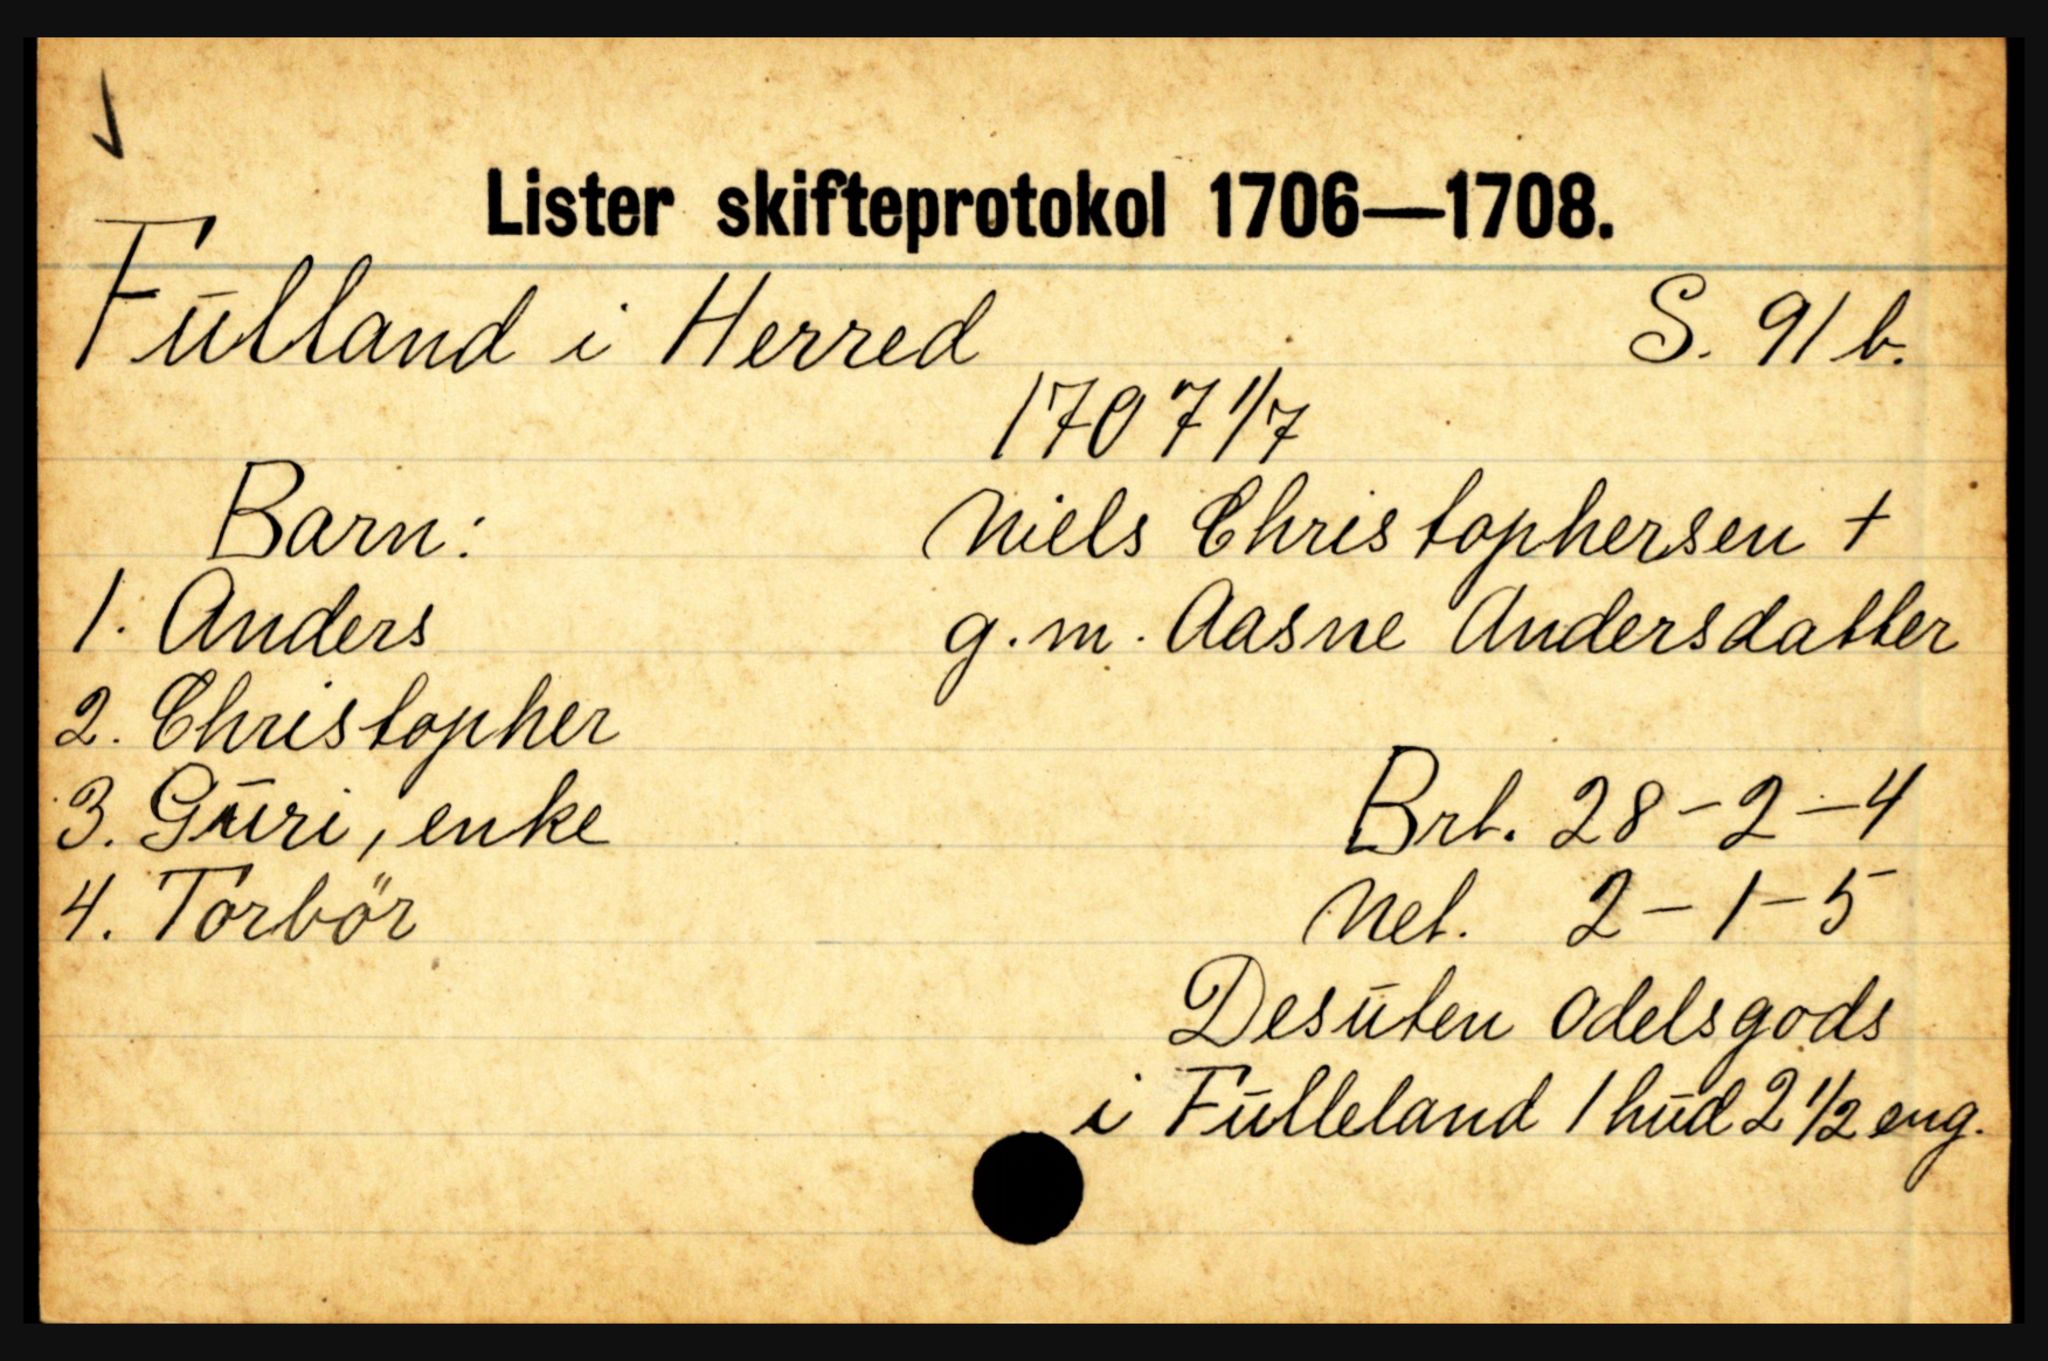 Lister skifteprotokol 1706—1708.
Fulland i Herred S. 91 b.
1707 1/7
Barn: Niels Christophersen +
1. Anders g.m. Aasne Andersdatter
2. Christopher
3. Guri, enke Brt. 28-2-4
4. Torbör Net. 2-1-5
Desuten odelsgods
i Fulleland 1 hud 2 1/2 eng.